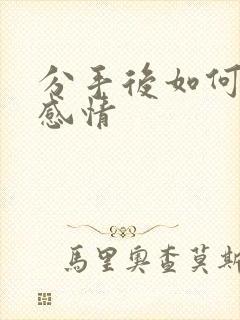 分手後如何
感情
馬里奧查莫斯